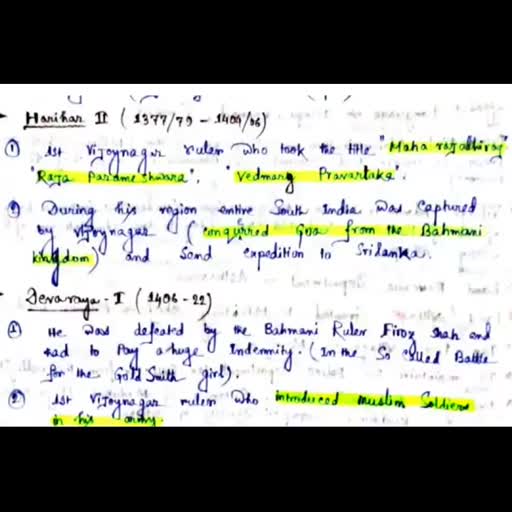 Harihar II (1377/79 - 1404/06)
① 1st Vijoynagar ruler who took the title "Maharajadhiraj"
"Raja Parameshwara", "Vedmarg Pravartaka".
② During his region entire South India was captured
by Vijoynagar (conquired Goa from the Bahmani
kingdom) and Send expedition to Srilanka.
Devaraya - I (1406 - 22)
① He was defeated by the Bahmani Ruler Firoz shah and
had to Pay a huge Indemnity. (In the So called Battle
for the Gold Smith girl).
② 1st Vijoynagar ruler who introduced muslim Soldiers
in his army.